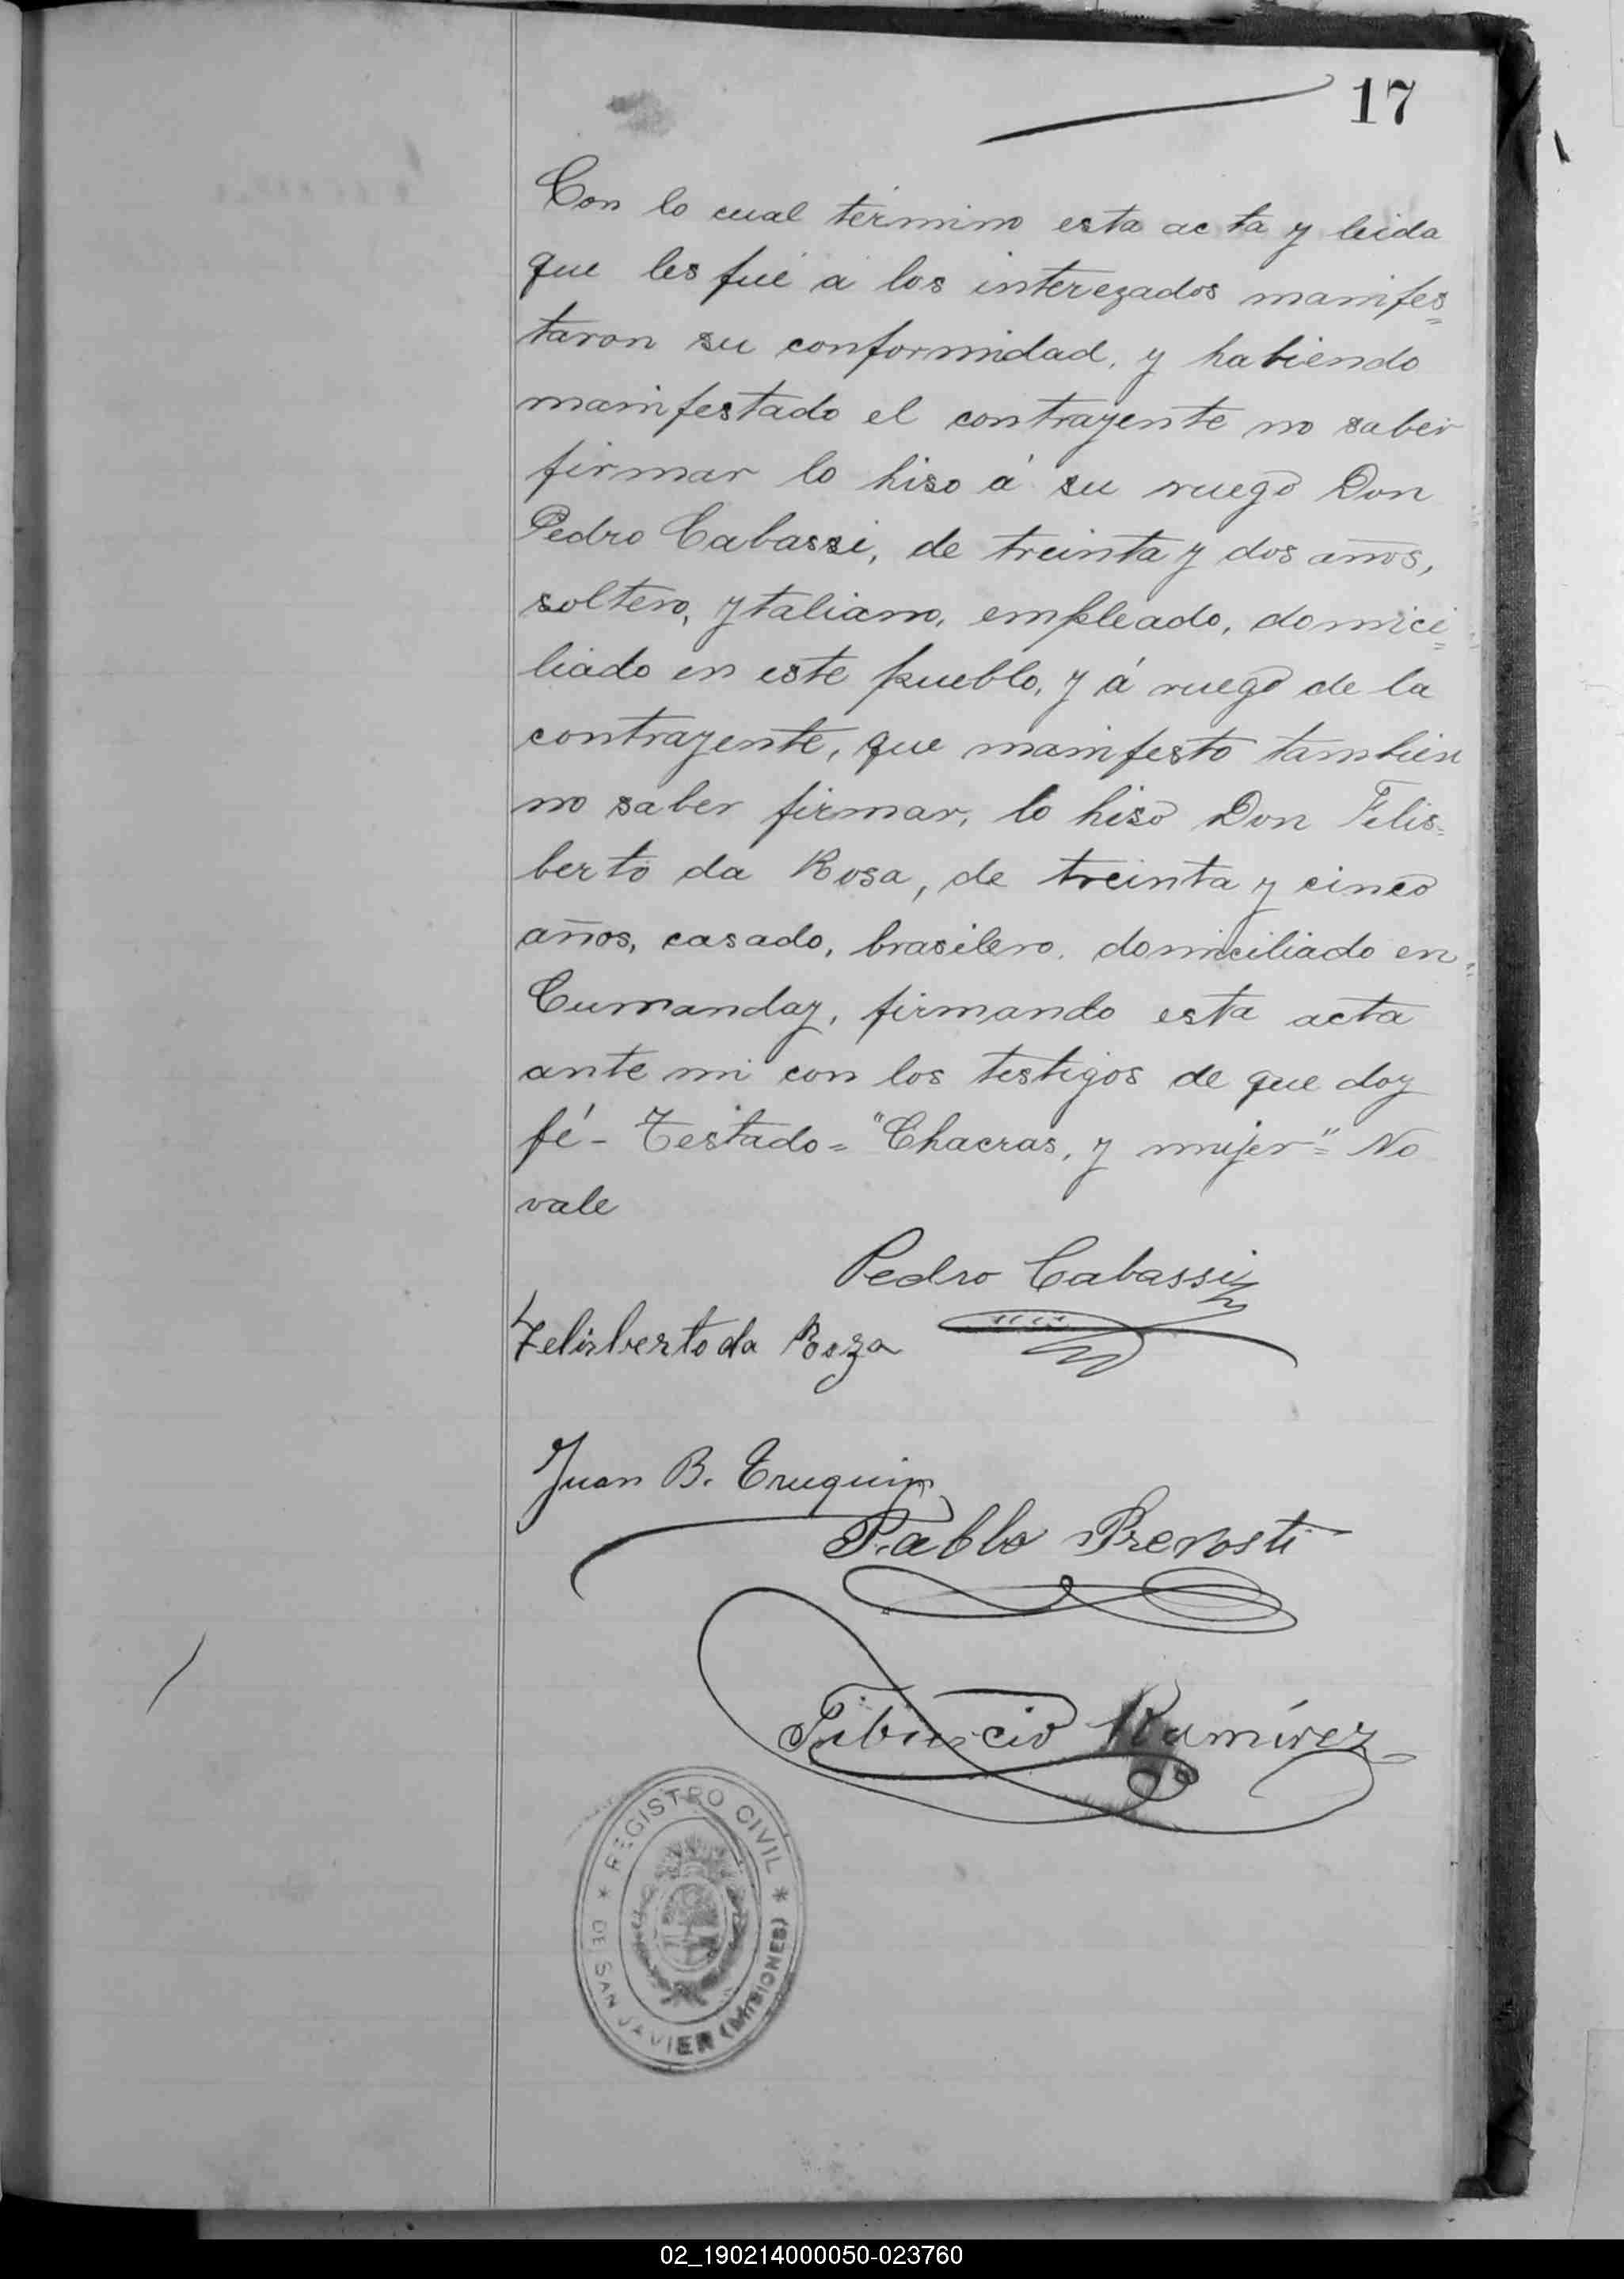 17
Con lo cual término esta acta y leida
que les fué a los interezados manifes=
taron su conformidad, y habiendo
manifestado el contrayente no saber
firmar lo hiso á su ruego Don
Pedro Cabassi, de treinta y dos años,
soltero, ytaliano, empleado, domici=
liado en este pueblo, y á ruego de la
contrayente, que manifesto tambien
no saber firmar, lo hiso Don Felis=
berto da Rosa, de treinta y cinco
años, casado, brasilero, domiciliado en
Cumanday, firmando esta acta
ante mi con los testigos de que doy
fé- Testado= "Chacras, y mujer"= No
vale
Pedro Cabassi
Felisberto da Roza
Juan B. Truquin
Pablo Prevosti
Tiburcio Ramírez
* REGISTRO CIVIL *
DE SAN JAVIER (MISIONES)
02_190214000050-023760